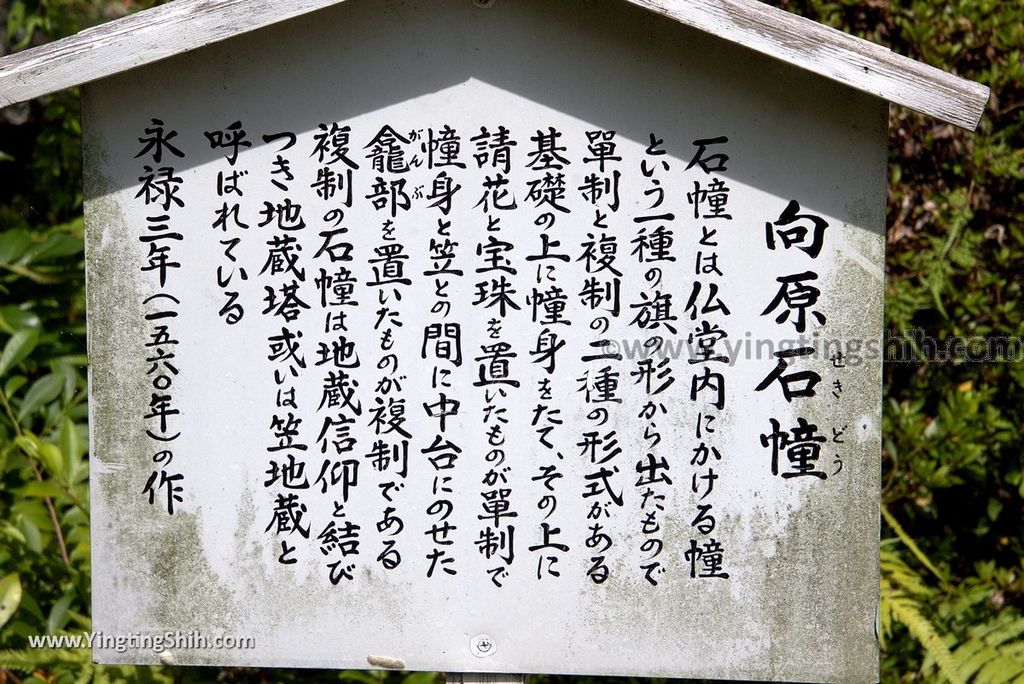 向原石幢
せきどう
石幢とは仏堂内にかける幢
という一種の旗の形から出たもので
單制と複制の二種の形式がある
基礎の上に幢身をたて、その上に
請花と宝珠を置いたものが單制で
幢身と笠との間に中台にのせた
龕部を置いたものが複制である
がんぶ
複制の石幢は地蔵信仰と結び
つき地蔵塔或いは笠地蔵と
呼ばれている
永禄三年(一五六〇年)の作
©www.yingtingshih.com
www.YingtingShih.com